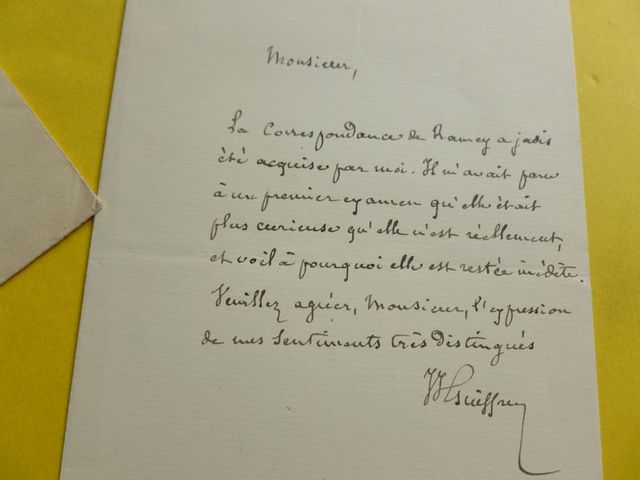 Monsieur,
La Correspondance de Ramey a jadis
été acquise par moi. Il m'avait paru
à un premier examen qu'elle était
plus curieuse qu'elle n'est réellement,
et voilà pourquoi elle est restée inédite.
Veuillez agréer, Monsieur, l'expression
de mes sentiments très distingués
JJ Guiffrey